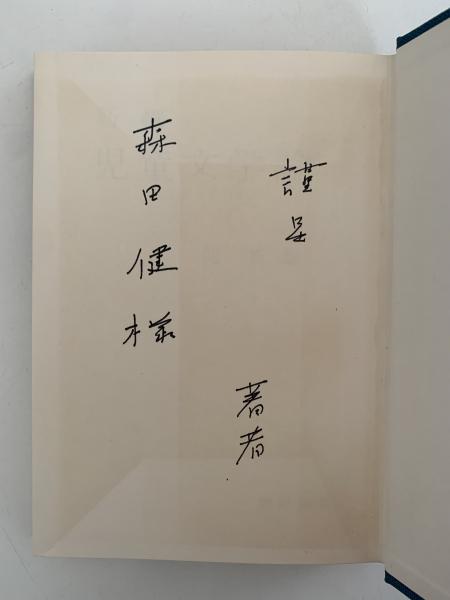 謹呈
著者
森田健様